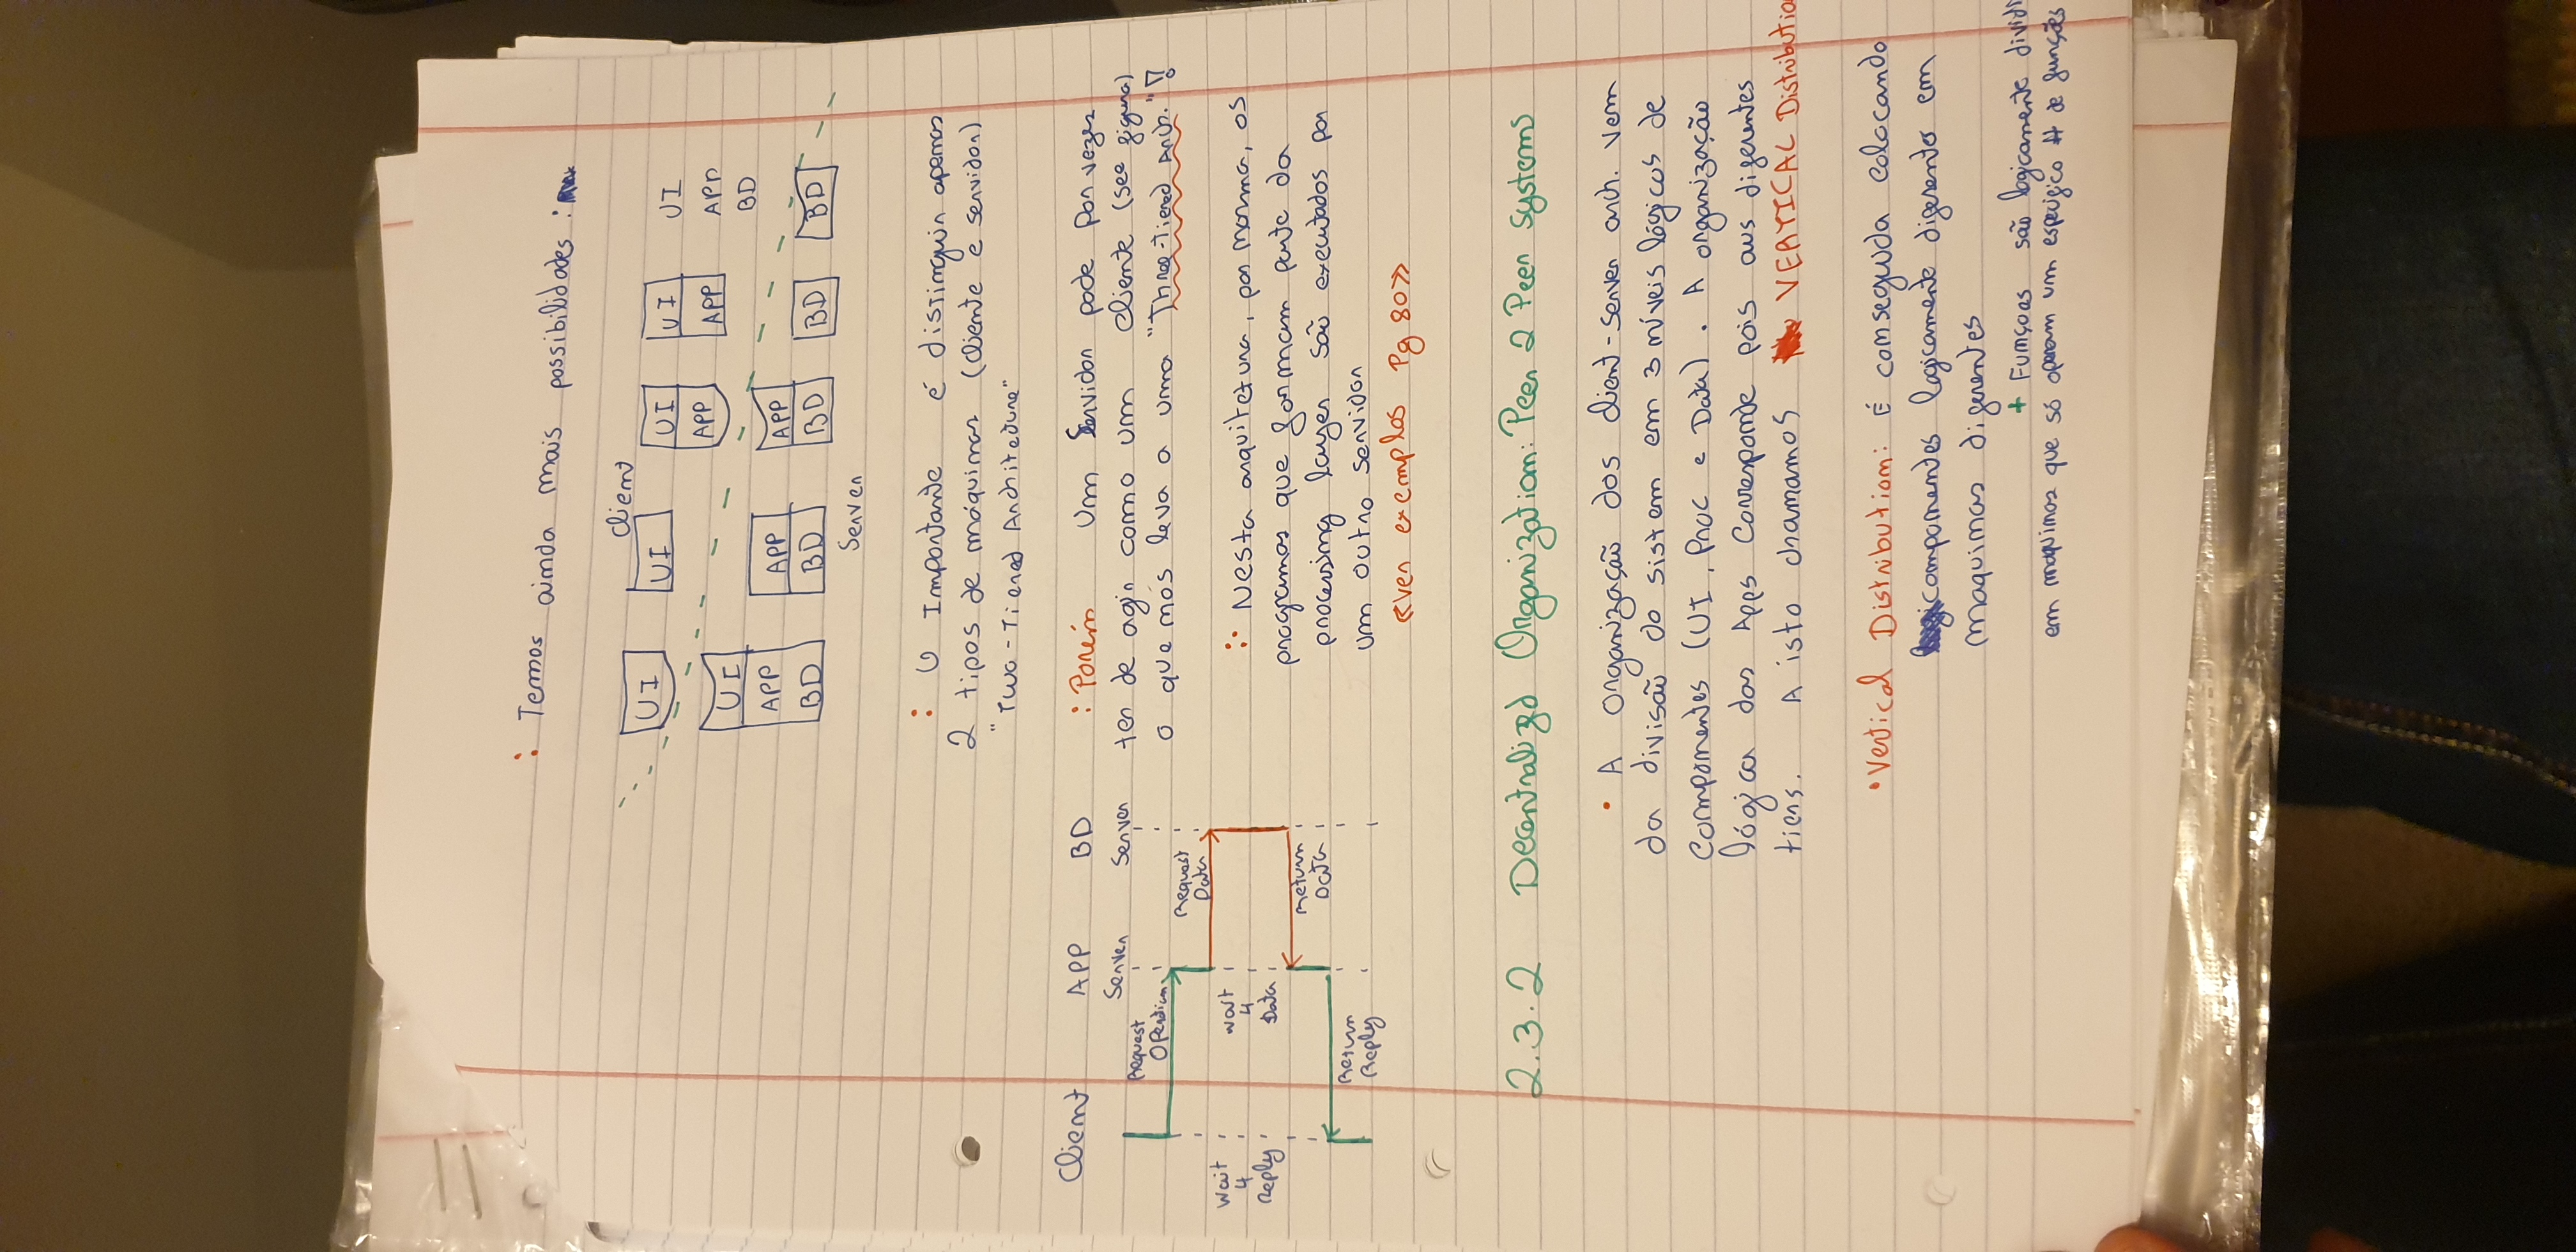 : Temos ainda mais possibilidades :
Client
UI UI UI UI UI
APP APP APP
BD
UI
APP APP APP
BD BD BD BD BD
Server
: O Importante é distinguir apenas
2 tipos de máquinas (cliente e servidor)
"Two-Tiered Architecture"
Client APP Server BD Server
Request Operation
Request Data
Wait 4 Reply
Wait 4 Data
Return Data
Return Reply
: Porém Um Servidor pode por vezes
ter de agir como um cliente (see figura)
o que nós leva a uma "Three-Tiered Arch."!
:· Nesta arquitetura, por norma, os
programas que formam parte da
processing layer são executados por
um outro servidor
«ver exemplos Pg 80»
2.3.2 Decentralized Organization: Peer 2 Peer systems
• A organização dos client-server arch. vem
da divisão do sistem em 3 níveis lógicos de
componentes (UI, Proc e Data). A organização
lógica das Apps corresponde pois aos diferentes
tiers. A isto chamamos VERTICAL Distributio
• Vertical Distribution: É conseguida colocando
componentes logicamente diferentes em
maquinas diferentes
+ Funçoes são logicamente dividi
em maquinas que só operam um especifico # de funções